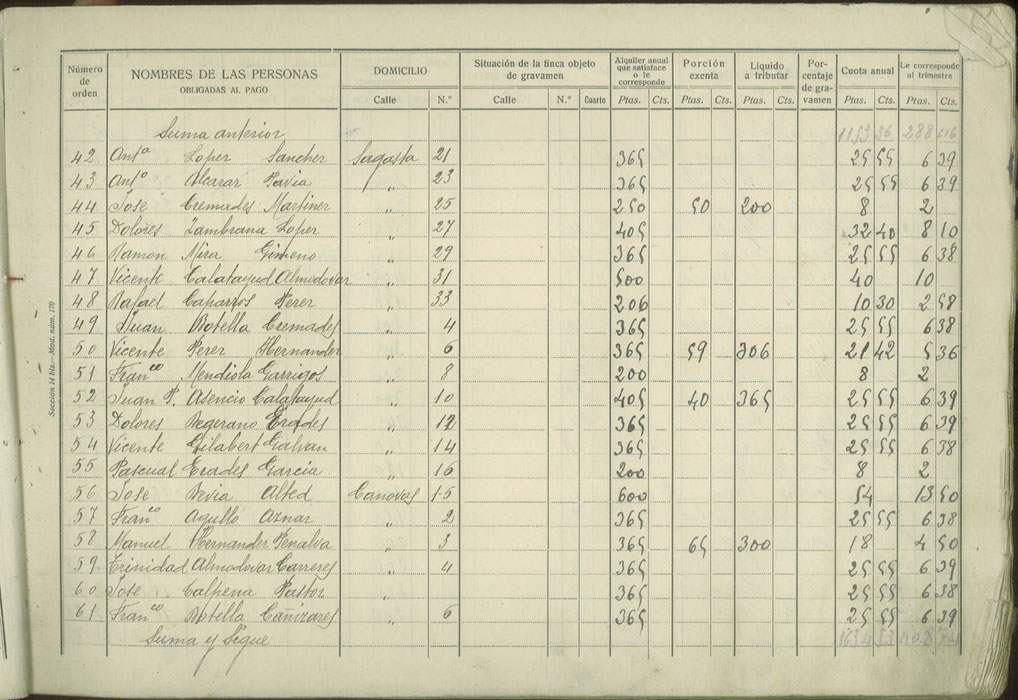 Número de orden
NOMBRES DE LAS PERSONAS
OBLIGADAS AL PAGO
DOMICILIO
Calle N.º
Situación de la finca objeto de gravamen
Calle N.º Cuarto
Alquiler anual que satisface o le corresponde
Ptas. Cts.
Porción exenta
Ptas. Cts.
Líquido a tributar
Ptas. Cts.
Porcentaje de gravamen
Cuota anual
Ptas. Cts.
Le corresponde al trimestre
Ptas. Cts.
Suma anterior 1153 36 288 46
42 Antª Loper Sancher Sagasta 21 365 25 55 6 39
43 Antº Alcarar Pavia " 23 365 25 55 6 39
44 Jose Cremades Martiner " 25 250 50 200 8 2
45 Dolores Zambrana Loper " 27 405 32 40 8 10
46 Ramon Mira Gimeno " 29 365 25 55 6 38
47 Vicente Calatayud Almodovar " 31 500 40 10
48 Rafael Caparros Perer " 33 206 10 30 2 58
49 Juan Botella Cremades " 4 365 25 55 6 38
50 Vicente Perer Hernander " 6 365 59 306 21 42 5 36
51 Franco Mendiola Garrigos " 8 200 8 2
52 Juan P. Asencio Calatayud " 10 405 40 365 25 55 6 39
53 Dolores Erades " 12 365 25 55 6 39
54 Vicente Gilabert Galvan " 14 365 25 55 6 38
55 Pascual Erades Garcia " 16 200 8 2
56 Jose Alted Canovas 1-5 600 54 13 50
57 Franco Agulló Aznar " 2 365 25 55 6 38
58 Manuel Hernander Penalva " 3 365 65 300 18 4 50
59 Trinidad Almodovar Carreres " 4 365 25 55 6 39
60 Jose Calpena Pastor " 365 25 55 6 38
61 Franco Botella Cañizares " 6 365 25 55 6 39
Suma y Sigue
Sección 14 bis.—Mod. núm. 170